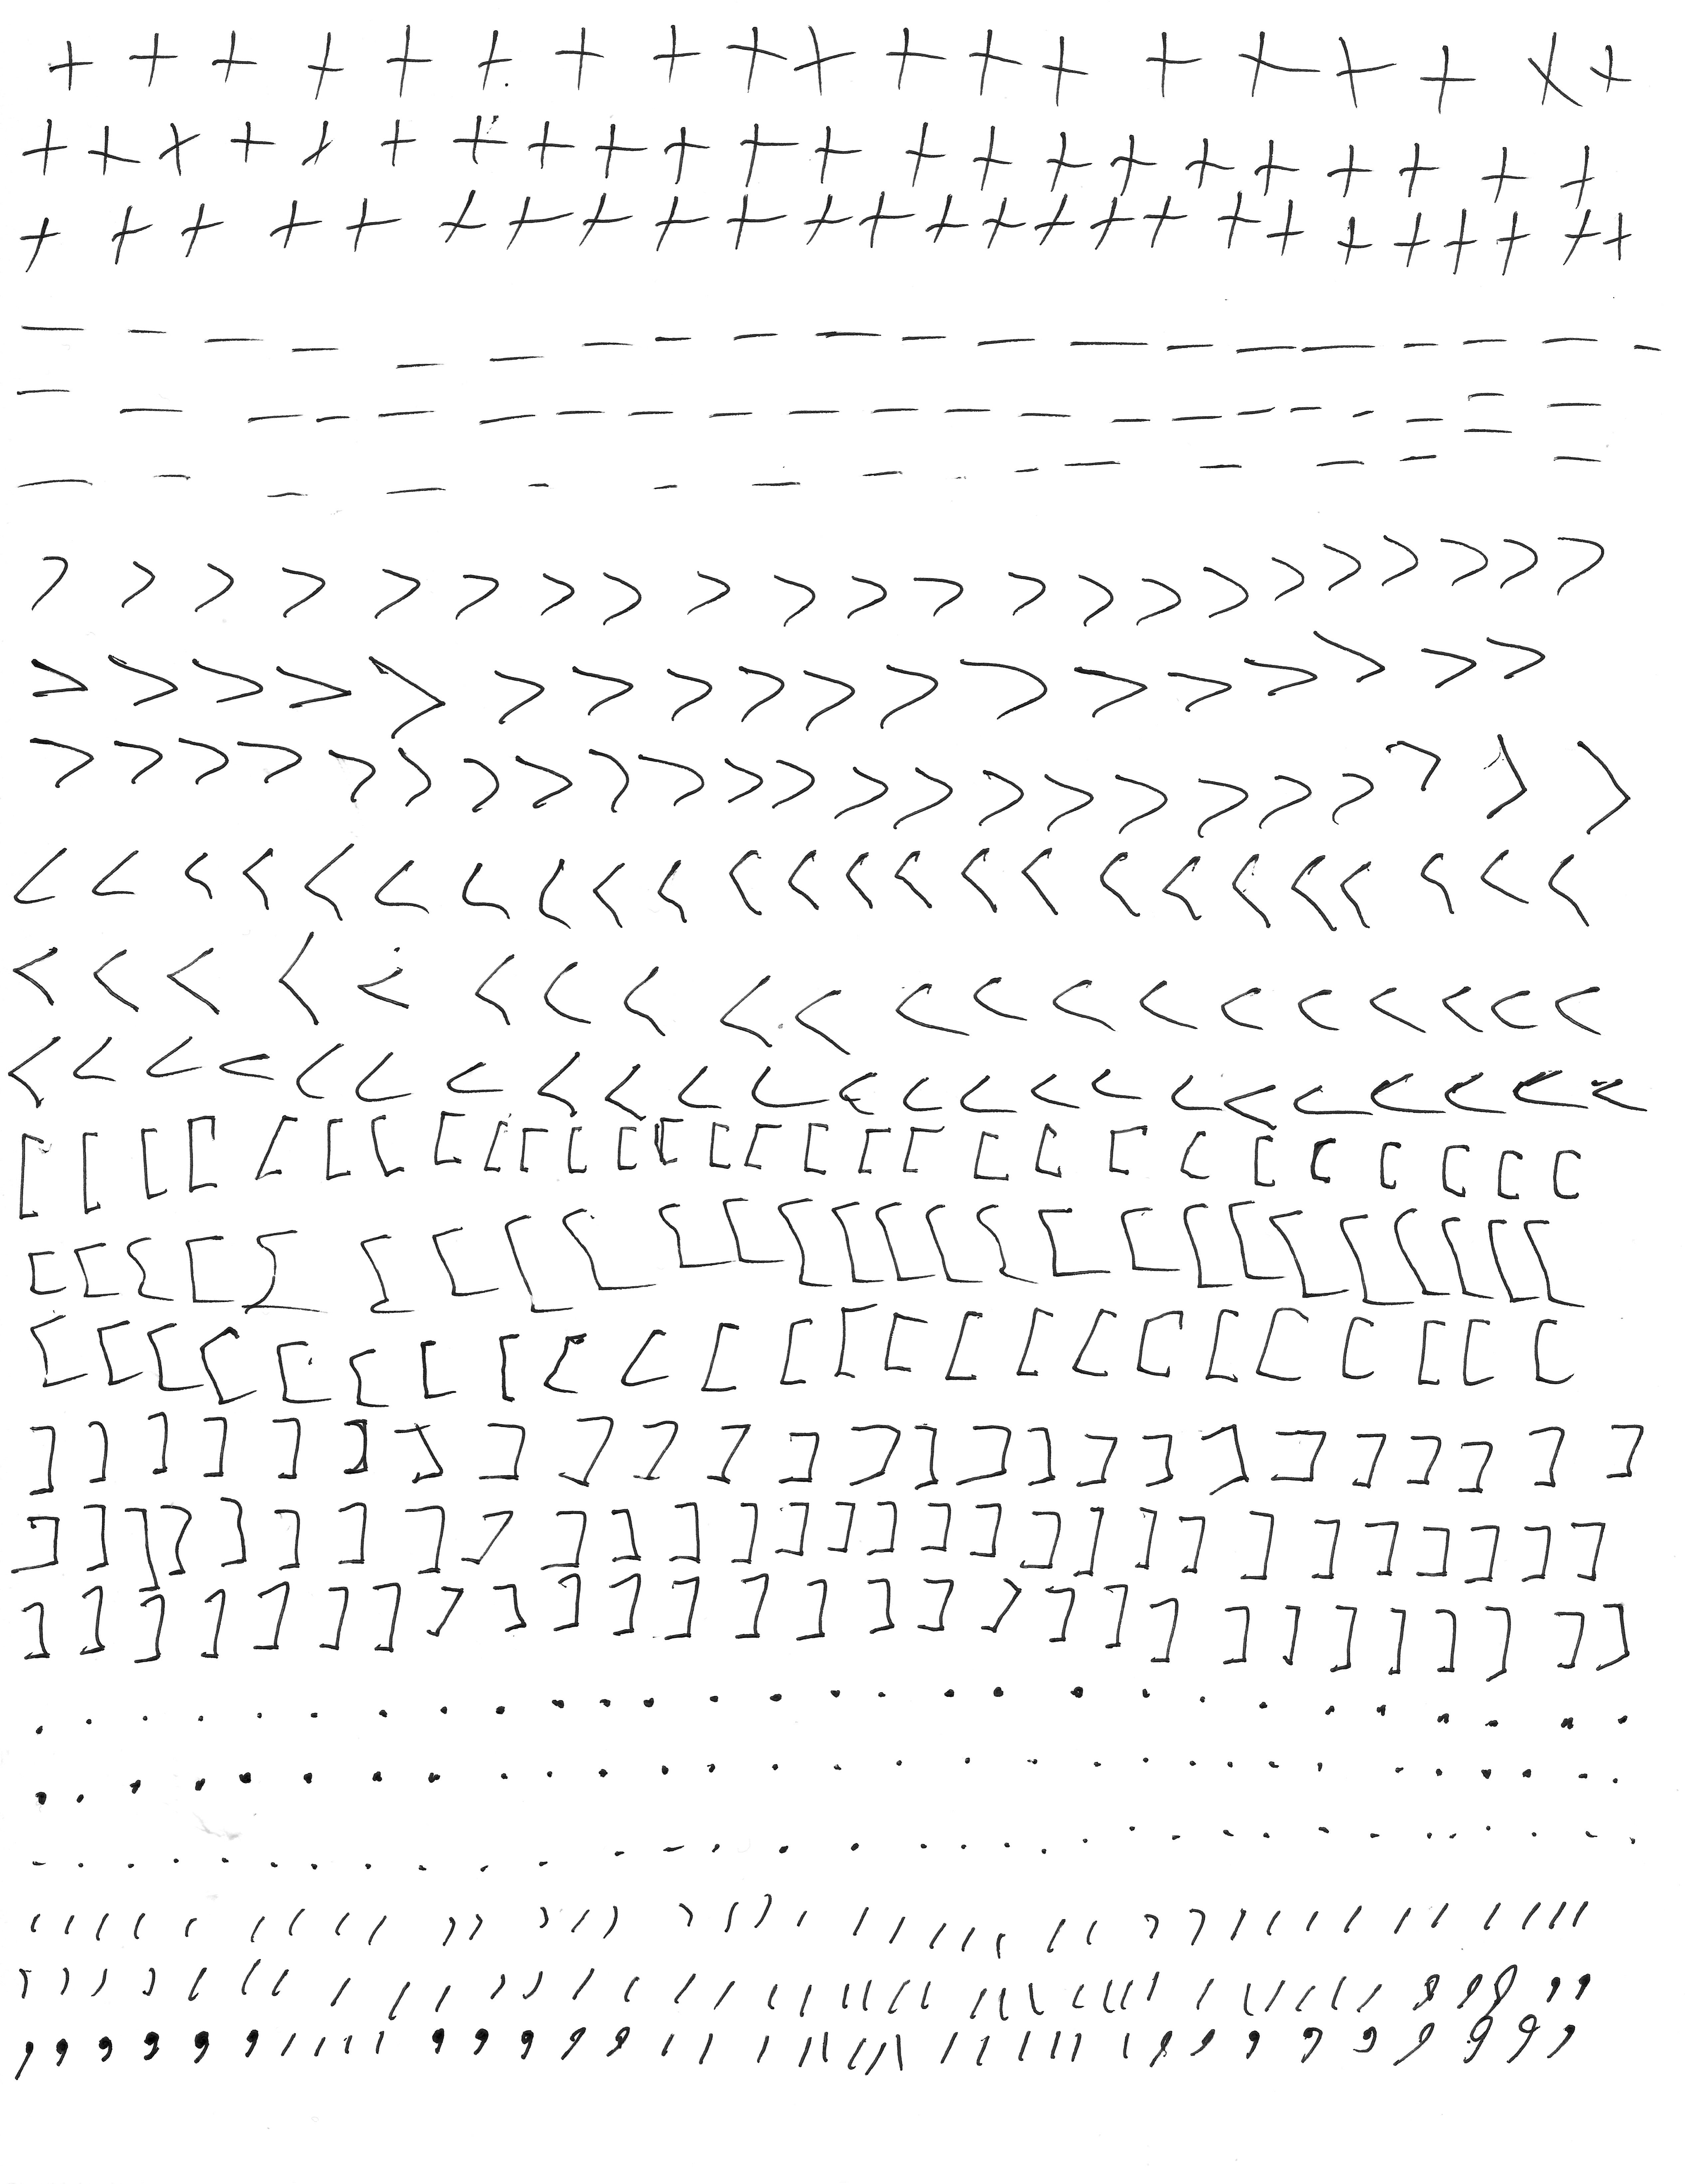 + + + + + + + + + + + + + + + + + + +
+ + + + + + + + + + + + + + + + + + + + + +
+ + + + + + + + + + + + + + + + + + + + + + + + +
- - - - - - - - - - - - - - - - - - -
- - - - - - - - - - - - - - - - - - - - -
- - - - - - - - - - - - - -
> > > > > > > > > > > > > > > > > > > > > >
> > > > > > > > > > > > > > > > > >
> > > > > > > > > > > > > > > > > > > > > > > >
< < < < < < < < < < < < < < < < < < < < < < < <
< < < < < < < < < < < < < < < < < < < <
< < < < < < < < < < < < < < < < < < < < < <
[ [ [ [ [ [ [ [ [ [ [ [ [ [ [ [ [ [ [ [ [ [ [ [ [ [ [ [
[ [ [ [ [ [ [ [ [ [ [ [ [ [ [ [ [ [ [ [ [ [ [ [ [ [ [
[ [ [ [ [ [ [ [ [ [ [ [ [ [ [ [ [ [ [ [ [ [ [ [
] ] ] ] ] ] ] ] ] ] ] ] ] ] ] ] ] ] ] ] ] ] ] ] ]
] ] ] ] ] ] ] ] ] ] ] ] ] ] ] ] ] ] ] ] ] ] ] ] ] ] ] ]
] ] ] ] ] ] ] ] ] ] ] ] ] ] ] ] ] ] ] ] ] ] ] ] ] ] ] ]
. . . . . . . . . . . . . . . . . . . . . . . . . .
. . . . . . . . . . . . . . . . . . . . . . . . . . . . .
. . . . . . . . . . . . . . . . . . . . . . . . . . . . . .
, , , , , , , , , , , , , , , , , , , , , , , , , , , , , , , , , , , ,
, , , , , , , , , , , , , , , , , , , , , , , , , , , , , , , , , , , , , ,
, , , , , , , , , , , , , , , , , , , , , , , , , , , , , , , , , , , , , ,